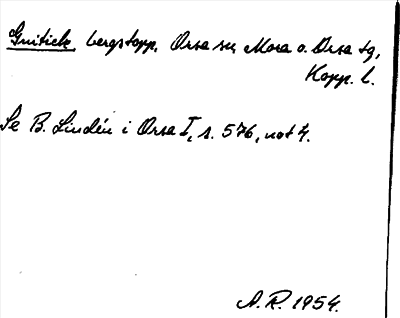 Gnitick, bergstopp, Orsa sn, Mora o. Orsa tg,
Kopp. l.
Se B. Lindén i Orsa I, s. 576, not 4.
A. R. 1954.